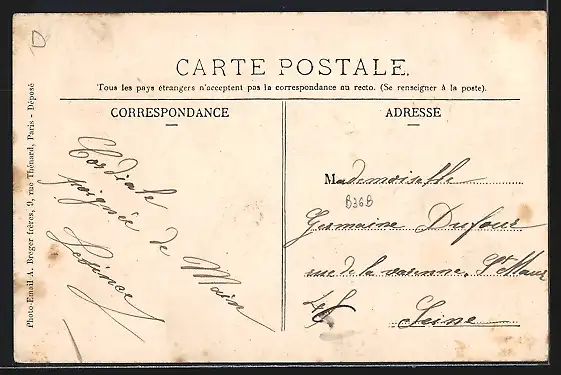 D
CARTE POSTALE.
Tous les pays étrangers n'acceptent pas la correspondance au recto. (Se renseigner à la poste).
CORRESPONDANCE
Cordiale
poignée de Main
ADRESSE
Mademoiselle
B36B
Germaine Dufour
rue de la varenne. St Maur
Seine
Photo-Email A. Breger frères, 9, rue Thénard, Paris - Déposé